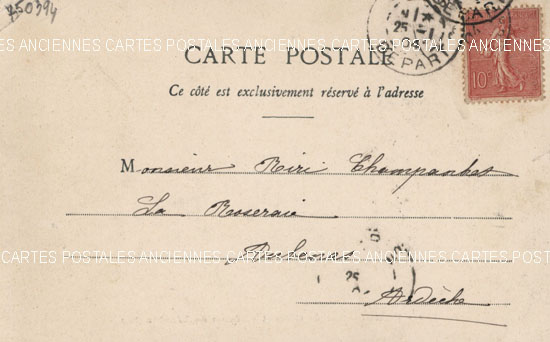 750394
CARTES POSTALES ANCIENNES CARTES POSTALES ANCIENNES CARTES POSTALES
CARTE POSTALE
10c
Ce côté est exclusivement réservé à l'adresse
Monsieur Riri Champanhet
La Roseraie
CARTES POSTALES ANCIENNES CARTES POSTALES ANCIENNES CARTES POSTALES
Aubenas
25
Ardèche